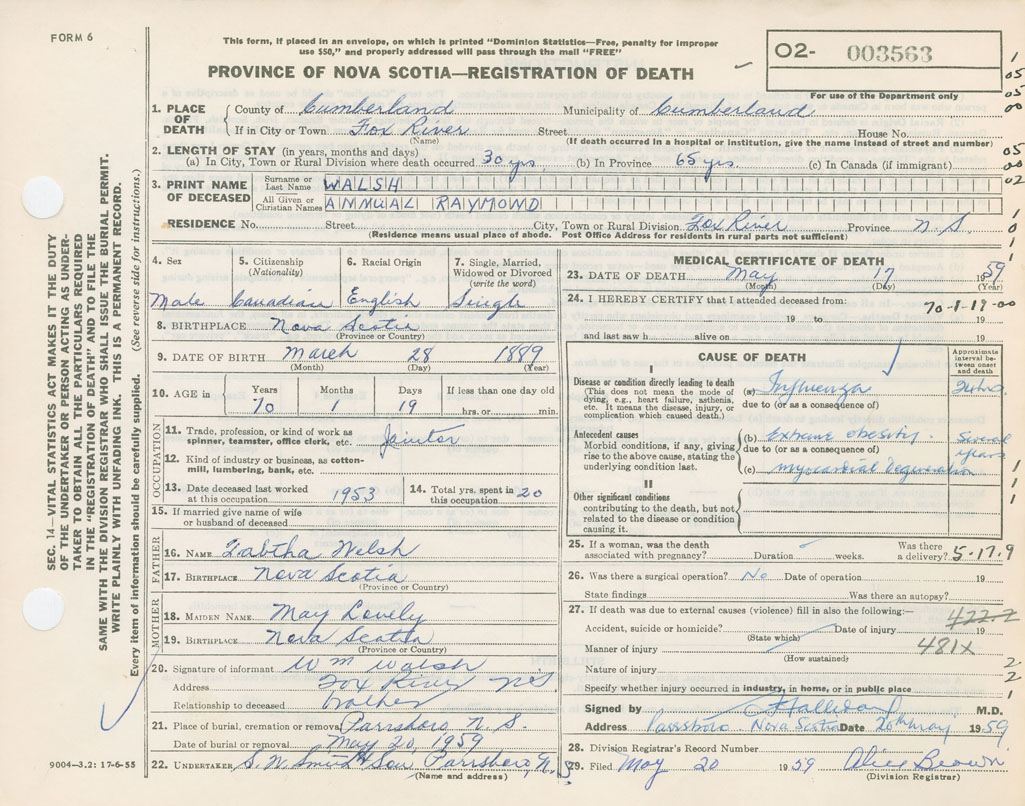 FORM 6
This form, if placed in an envelope, on which is printed "Dominion Statistics—Free, penalty for improper
use $50," and properly addressed will pass through the mail "FREE"
PROVINCE OF NOVA SCOTIA—REGISTRATION OF DEATH
O2- 003563
For use of the Department only
1. PLACE OF DEATH
County of Cumberland Municipality of Cumberland
If in City or Town Fox River Street House No.
(Name) (If death occurred in a hospital or institution, give the name instead of street and number)
2. LENGTH OF STAY (in years, months and days)
(a) In City, Town or Rural Division where death occurred 30 yrs (b) In Province 65 yrs. (c) In Canada (if immigrant)
3. PRINT NAME OF DECEASED
Surname or Last Name WALSH
All Given or Christian Names ANNUAL RAYMOND
RESIDENCE No. Street City, Town or Rural Division Fox River Province N.S.
(Residence means usual place of abode. Post Office Address for residents in rural parts not sufficient)
4. Sex
Male
5. Citizenship
(Nationality)
Canadian
6. Racial Origin
English
7. Single, Married,
Widowed or Divorced
(write the word)
Single
8. BIRTHPLACE Nova Scotia
(Province or Country)
9. DATE OF BIRTH March 28 1889
(Month) (Day) (Year)
10. AGE in
Years Months Days If less than one day old
70 1 19 hrs. or min.
OCCUPATION
11. Trade, profession, or kind of work as
spinner, teamster, office clerk, etc. Janitor
12. Kind of industry or business, as cotton-
mill, lumbering, bank, etc.
13. Date deceased last worked
at this occupation 1953
14. Total yrs. spent in
this occupation 20
15. If married give name of wife
or husband of deceased
FATHER
16. NAME Tabtha Welsh
17. BIRTHPLACE Nova Scotia
(Province or Country)
MOTHER
18. MAIDEN NAME May Lovely
19. BIRTHPLACE Nova Scotia
(Province or Country)
20. Signature of informant Wm Walsh
Address Fox River NS
Relationship to deceased brother
21. Place of burial, cremation or removal Parrsboro N.S.
Date of burial or removal May 20, 1959
22. UNDERTAKER S.N. Smith & Son Parrsboro, N.S
(Name and address)
MEDICAL CERTIFICATE OF DEATH
23. DATE OF DEATH May 17 1959
(Month) (Day) (Year)
24. I HEREBY CERTIFY that I attended deceased from:
70-1-19-00
19 to 19
and last saw h alive on 19
CAUSE OF DEATH
Approximate
interval be-
tween onset
and death
I
Disease or condition directly leading to death
(This does not mean the mode of
dying, e.g., heart failure, asthenia,
etc. It means the disease, injury, or
complication which caused death.)
(a) Influenza
due to (or as a consequence of)
Antecedent causes
Morbid conditions, if any, giving
rise to the above cause, stating the
underlying condition last.
(b) Extreme obesity. Several years
due to (or as a consequence of)
(c) myocardial degeneration
II
Other significant conditions
contributing to the death, but not
related to the disease or condition
causing it.
25. If a woman, was the death
associated with pregnancy? Duration weeks. Was there
a delivery? 5-17.9
26. Was there a surgical operation? No Date of operation 19
State findings Was there an autopsy?
27. If death was due to external causes (violence) fill in also the following:—
422-2
Accident, suicide or homicide? Date of injury 19
(State which)
Manner of injury 481X
(How sustained)
Nature of injury
Specify whether injury occurred in industry, in home, or in public place
Signed by Halliday M.D.
Address Parrsboro Nova Scotia Date 20th May 1959
28. Division Registrar's Record Number
29. Filed May 20 1959 Alice Brown
(Division Registrar)
SEC. 14—VITAL STATISTICS ACT MAKES IT THE DUTY
OF THE UNDERTAKER OR PERSON ACTING AS UNDER-
TAKER TO OBTAIN ALL THE PARTICULARS REQUIRED
IN THE "REGISTRATION OF DEATH" AND TO FILE THE
SAME WITH THE DIVISION REGISTRAR WHO SHALL ISSUE THE BURIAL PERMIT.
WRITE PLAINLY WITH UNFADING INK. THIS IS A PERMANENT RECORD.
Every item of information should be carefully supplied. (See reverse side for instructions.)
9004—3.2: 17-6-55
1
05
05
00
05
00
02
1
0
1
1
1
1
1
2
2
1